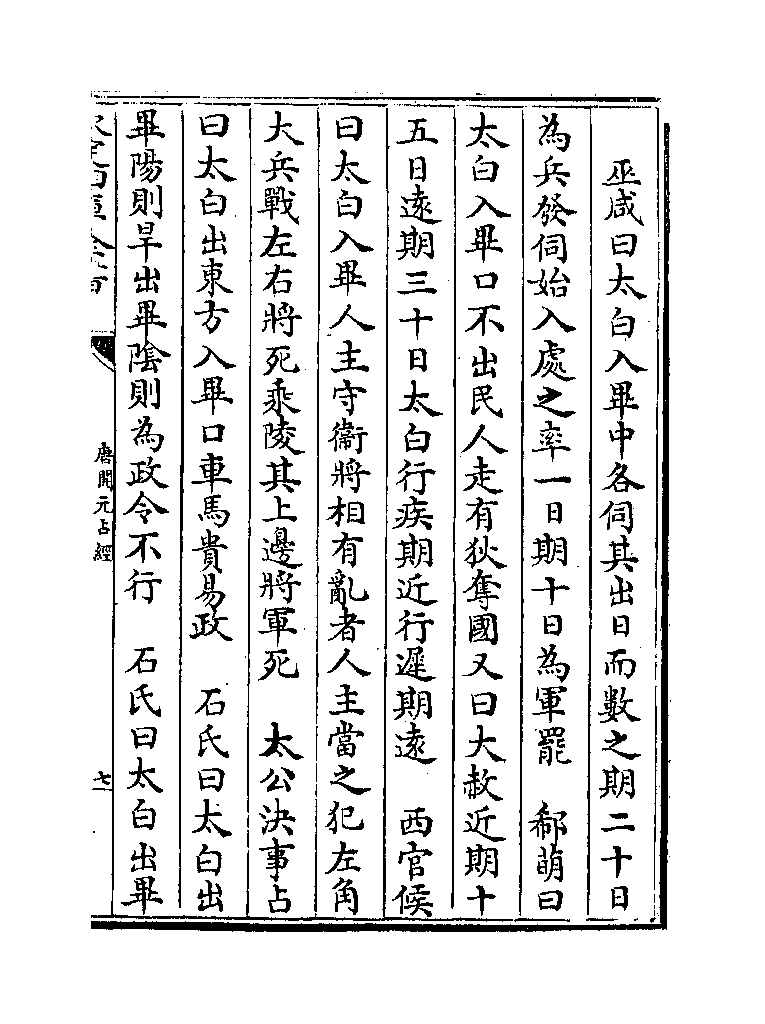 巫咸曰太白入畢中各伺其出日而數之期二十日
為兵發伺始入處之率一日期十日為軍罷　郗萌曰
太白入畢口不出民人走有狄奪國又曰大赦近期十
五日遠期三十日太白行疾期近行遲期遠　西官候
曰太白入畢人主守衞將相有亂者人主當之犯左角
大兵戰左右將死乘陵其上邊將軍死　太公決事占
曰太白出東方入畢口車馬貴易政　石氏曰太白出
畢陽則旱出畢隂則為政令不行　石氏曰太白出畢
唐開元占經
七